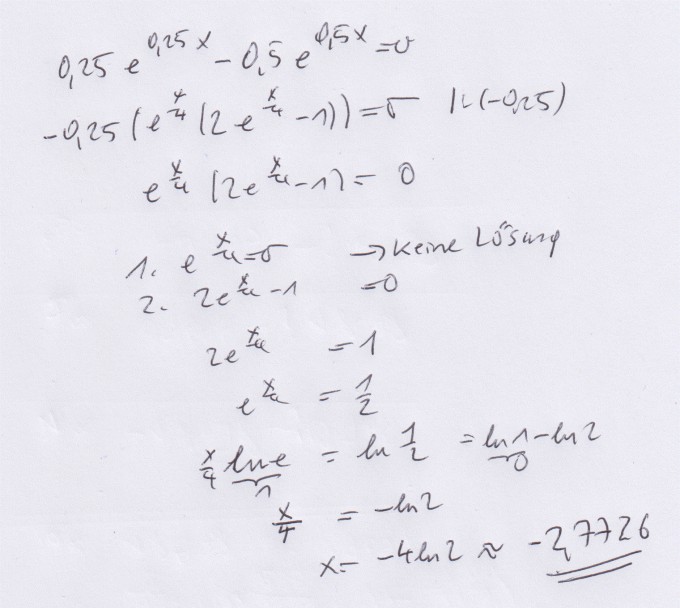 0,25 e^{0,25x} - 0,5 e^{0,5x} = 0
-0,25 (e^{x/4} (2e^{x/4} - 1)) = 0 |: (-0,25)
e^{x/4} (2e^{x/4} - 1) = 0
1. e^{x/4} = 0 → keine Lösung
2. 2e^{x/4} - 1 = 0
2e^{x/4} = 1
e^{x/4} = 1/2
x/4 ln e = ln 1/2 = ln 1 - ln 2
1 0
x/4 = -ln 2
x = -4 ln 2 ≈ -2,7726